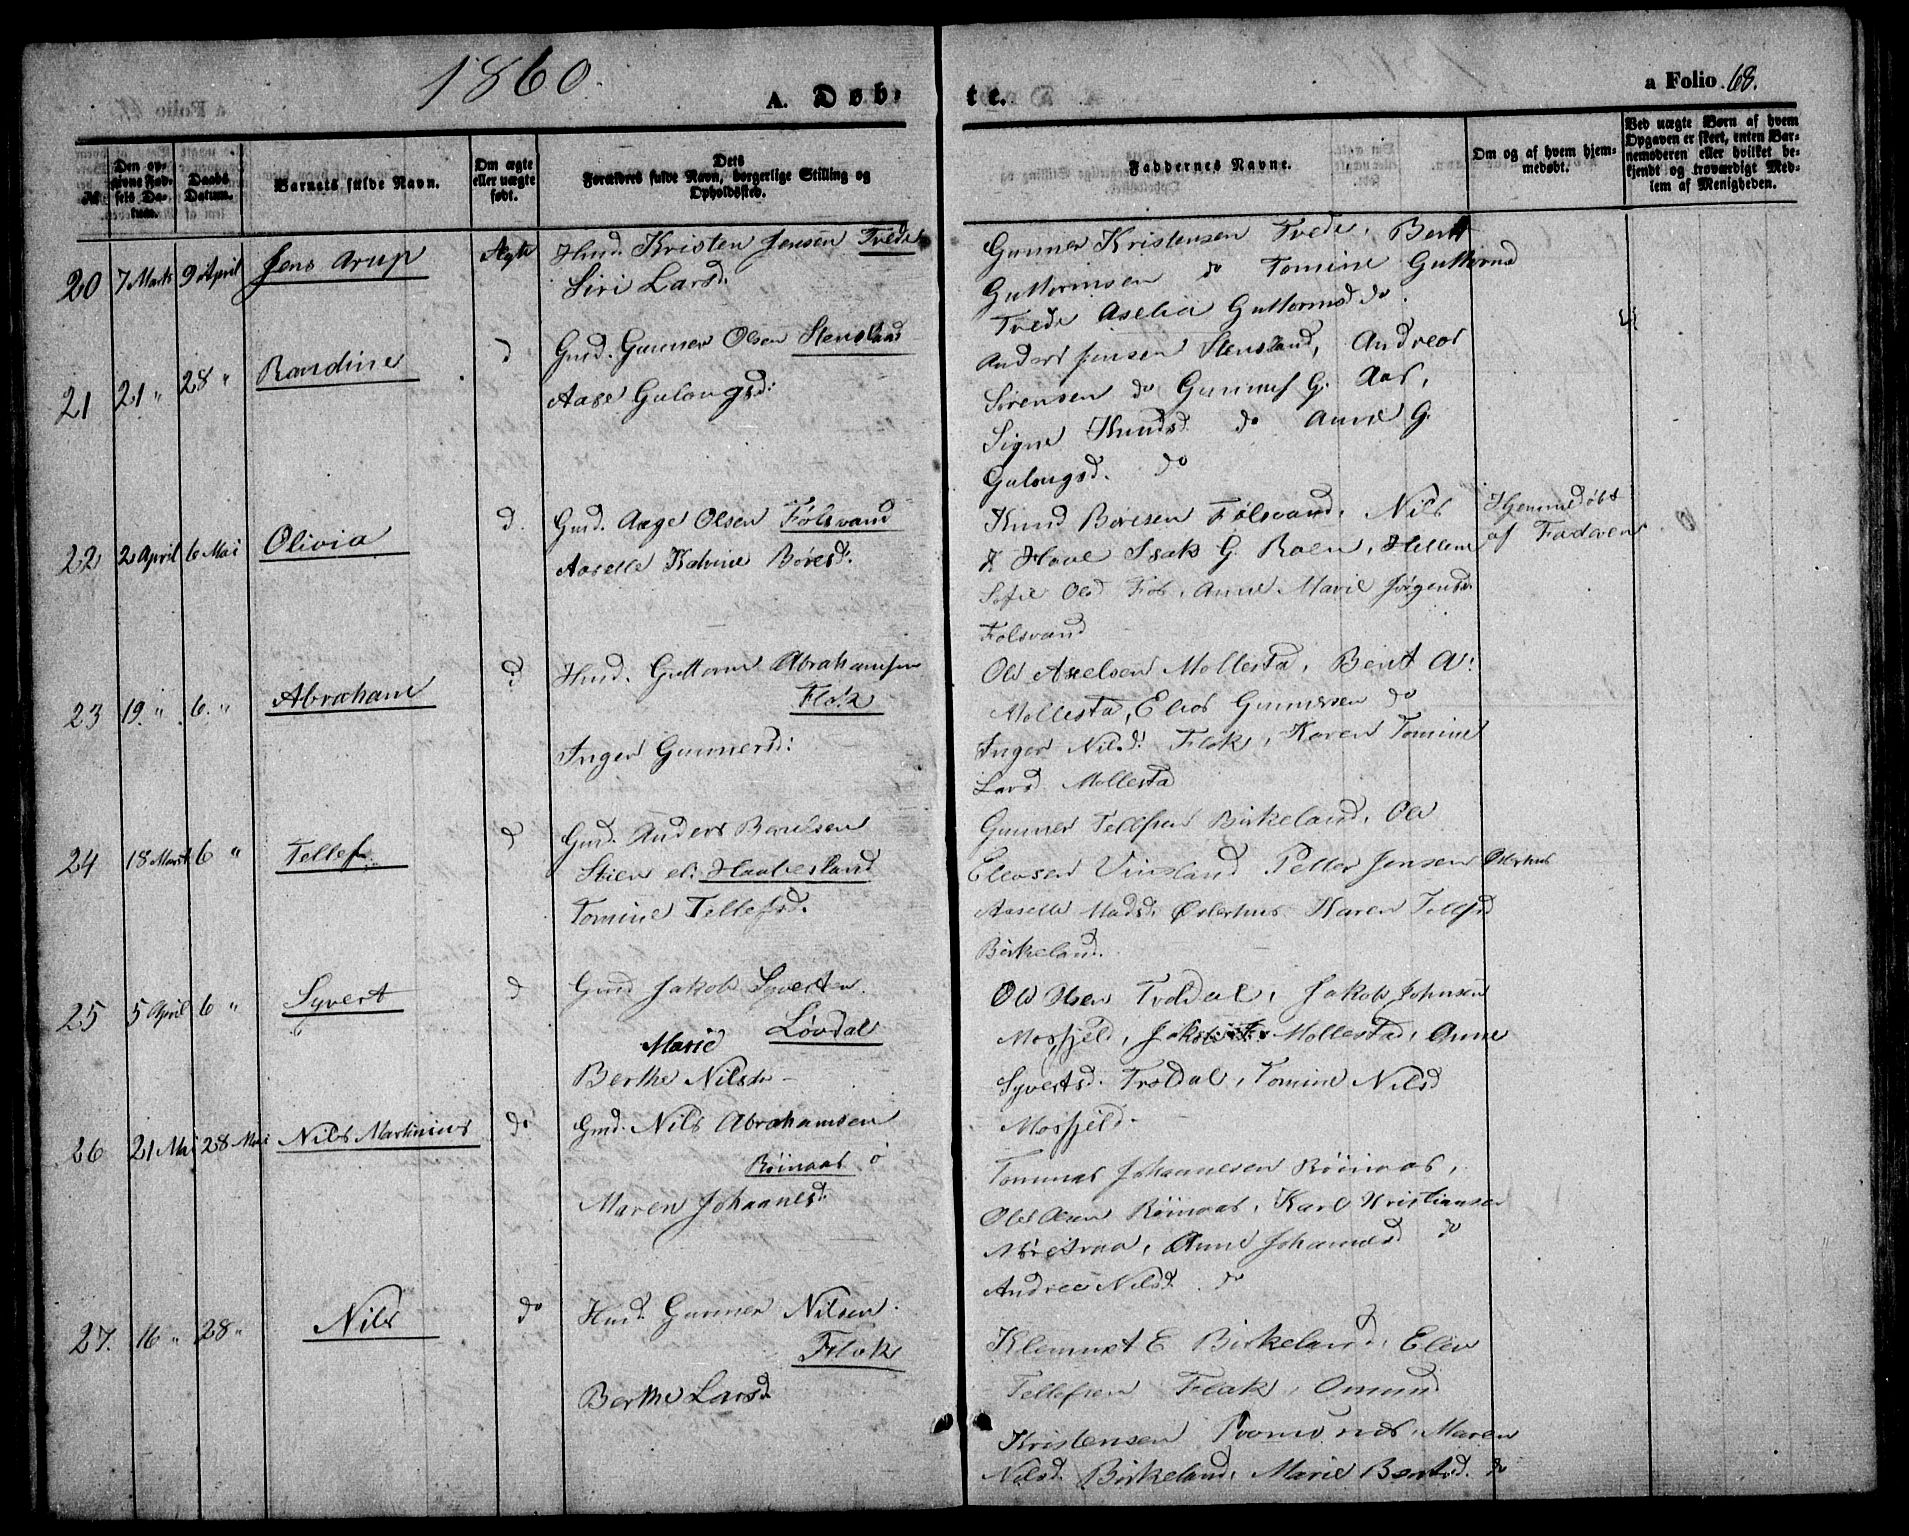 1860.
A. Døbte.
a Folio 68.
No.
Den opgivne Fødsels Datum.
Daabs Datum.
Barnets fulde Navn.
Om ægte eller uægte født.
Dets Forældres fulde Navn, borgerlige Stilling og Opholdssted.
Faddernes Navne.
Om og af hvem hjemmedøbt.
Ved uægte Børn af hvem Opgaven er skeet, enten Barnemoderen eller hvilket bekjendt og troværdigt Medlem af Menigheden.
20 7 Marts 9 April Jens Arup Ægte Husd. Kristen Jensen Tvede
Siri Larsd.
Gunner Kristensen Tvede, Bent
Guttormsen do Tomine Guttormsd
Tvede Aselia Guttormsd do.
21 21 " 28 " Randine d Gmd. Gunner Olsen Stensland
Aase Gulongsd:
Anders Jensen Stensland, Andreas
Sørensen do Gunnuf G. Aas,
Signe Knudsd. do Anne G.
Gulongsd. do
22 2 April 6 Mai Olivia d. Gmd. Aage Olsen Følsvand
Aaselle Katrine Boresd:
Knud Boresen Følsvand, Nils
K Hove Isak G. Roen, Hellene
Sofie Olsd Føs, Anne Marie Jørgensd.
Følsvand
Hjemmedøbt
af Faderen
23 19. " 6. " Abraham d Husd. Guttorm Abrahamsen
Flak
Inger Gunnersd:
Ole Axelsen Mollestad, Bent A.
Mollestad, Elias Gunnersen do
Inger Nilsd: Flak, Karen Tomine
Larsd Mollestad
24 18 Marts 6 " Tellef d Gmd. Anders Berulsen
Stien el: Haabesland
Tomine Tellefsd.
Gunner Tellefsen Birkeland, Ole
Elevsen Vinsland Petter Jensen Østerhus
Aaselle Madsd. Østerhus Karen Tellefsd
Birkeland.
25 5 April 6 " Syvert d Gmd Jakob Syvertsen
Løvdal
Marie
Berthe Nilsd
Ole Olsen Troldal, Jakob Johnsen
Mosfjeld, Mollestad, Anne
Syvertsd. Troldal, Tomine Nilsd
Mosfjeld
26 21 Mai 28 Mai Nils Martinius do Gmd. Nils Abrahamsen
Røinaas
Maren Johannesd:
Tommas Johannesen Røinaas,
Ole Olsen Røinaas, Karl Kristiansen
Anne Johannesd do
Andrea Nilsd. do
27. 16 " 28 " Nils do Husd. Gunner Nilsen
Flak
Berthe Larsd.
Klemmet E Birkeland, Elev
Tellefsen Flak, Omund
Kristensen Maren
Nilsd. Birkeland, Marie Bentsd. do